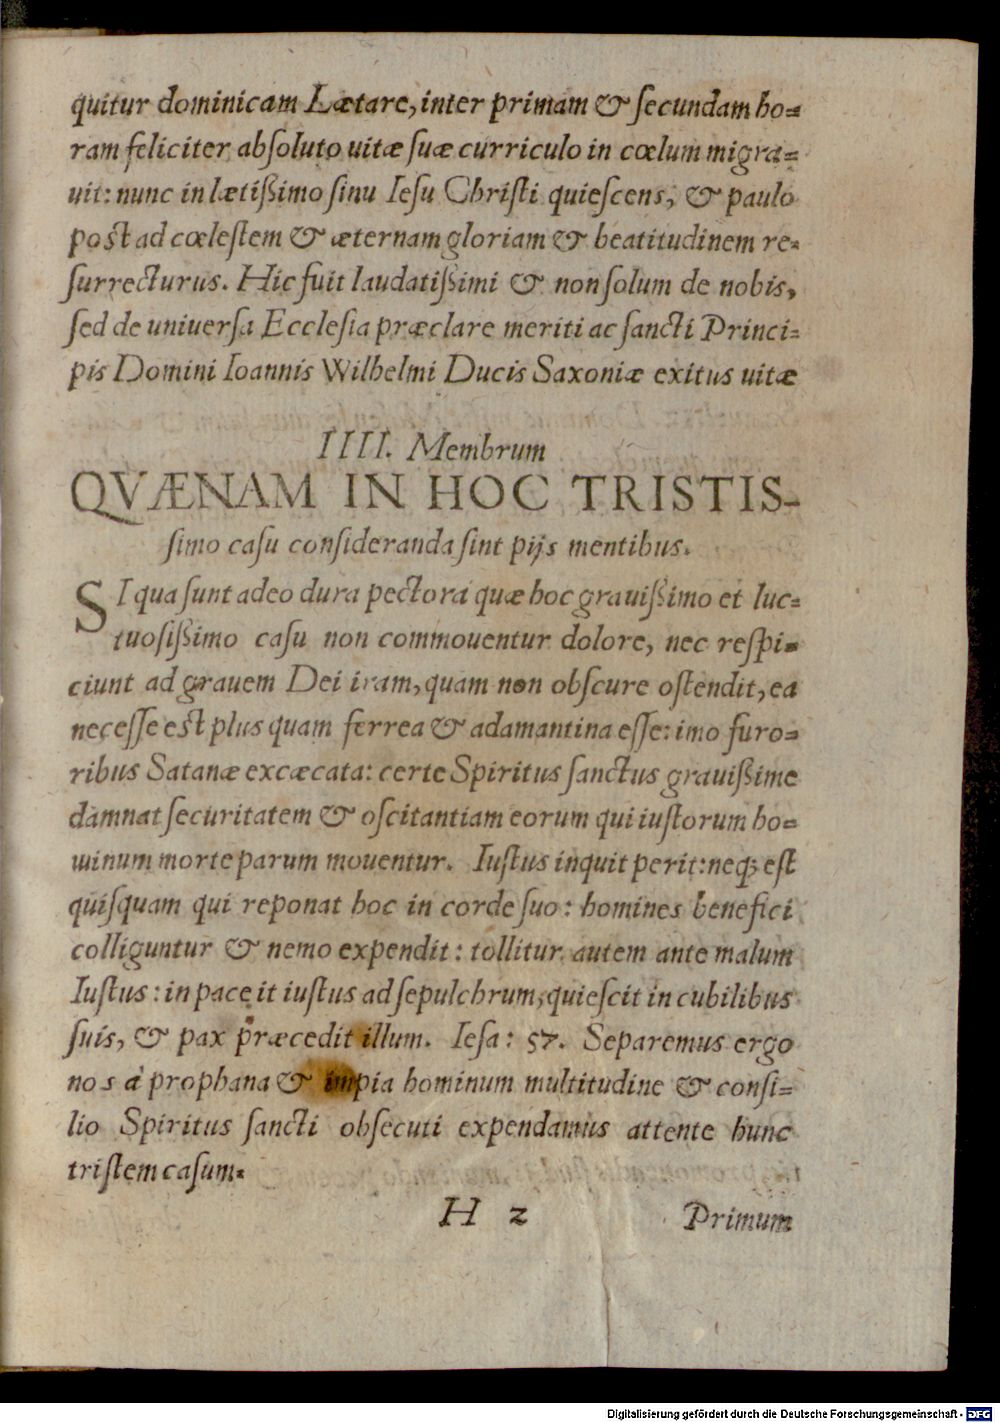 quitur dominicam Lætare, inter primam & ſecundam ho=
ram feliciter abſoluto uitæ ſuæ curriculo in cœlum migra=
uit: nunc in lætißimo ſinu Ieſu Chriſti quieſcens, & paulo
poſt ad cœleſtem & æternam gloriam & beatitudinem re=
ſurrecturus. Hic fuit laudatißimi & non ſolum de nobis,
ſed de uniuerſa Eccleſia præclare meriti ac ſancti Princi=
pis Domini Ioannis Wilhelmi Ducis Saxoniæ exitus uitæ
IIII. Membrum
QVÆNAM IN HOC TRISTIS-
ſimo caſu conſideranda ſint pijs mentibus.
SI qua ſunt adeo dura pectora quæ hoc grauißimo et luc=
tuoſißimo caſu non commouentur dolore, nec reſpi=
ciunt ad grauem Dei iram, quam non obſcure oſtendit, ea
neceſſe eſt plus quam ferrea & adamantina eſſe: imo furo=
ribus Satanæ excæcata: certe Spiritus ſanctus grauißime
damnat ſecuritatem & oſcitantiam eorum qui iuſtorum ho=
minum morte parum mouentur. Iuſtus inquit perit: neq; eſt
quiſquam qui reponat hoc in corde ſuo: homines benefici
colliguntur & nemo expendit: tollitur autem ante malum
Iuſtus: in pace it iuſtus ad ſepulchrum, quieſcit in cubilibus
ſuis, & pax præcedit illum. Ieſa: 57. Separemus ergo
nos à prophana & impia hominum multitudine & conſi=
lio Spiritus ſancti obſecuti expendamus attente hunc
triſtem caſum.
H 2 Primum
Digitalisierung gefördert durch die Deutsche Forschungsgemeinschaft - DFG